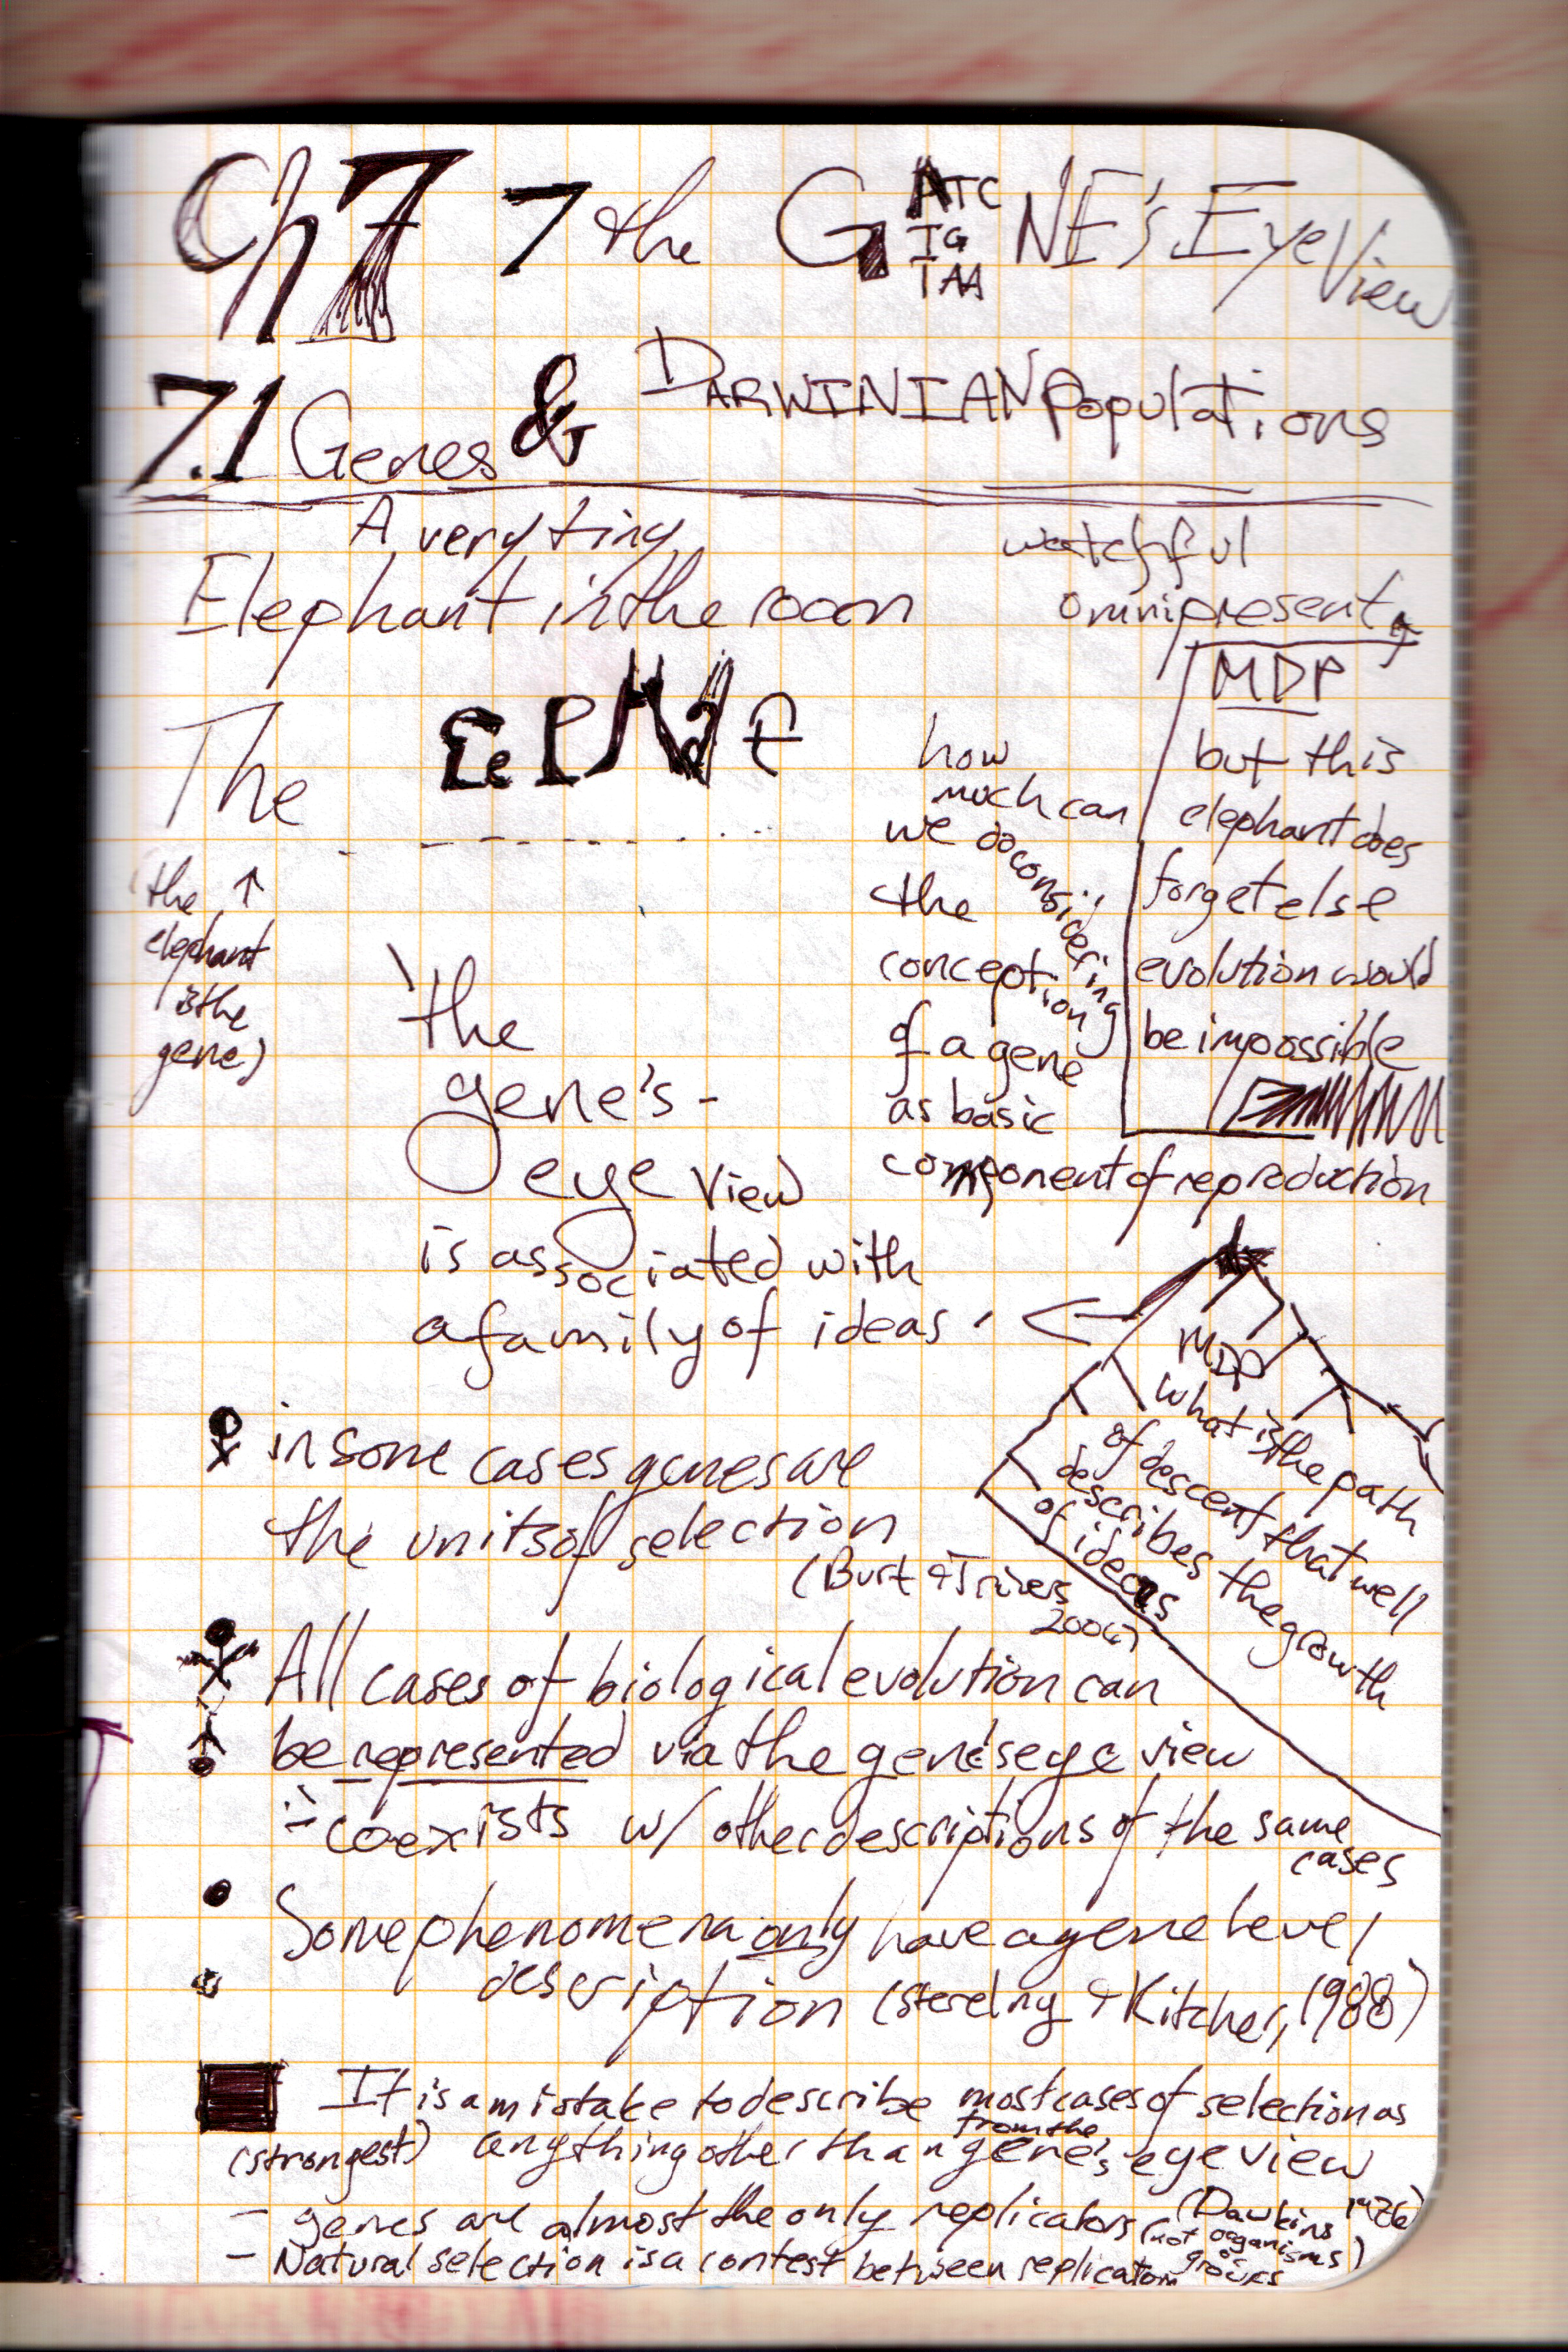 Ch 7 7 the GATC NE's Eye View
TG
TAA
7.1 Genes & DARWINIAN Populations
A very tiny
Elephant in the room
The
(the ↑
elephant
is the
gene)
watchful
omnipresent
MDP
but this
elephant does
forget else
evolution would
be impossible
how
much can
we do considering
the
conception
of a gene
as basic
component of reproduction
the
gene's-
eye view
is associated with
a family of ideas
MDP
what is the path
of descent that well
describes the growth
of ideas
in some cases genes are
the units of selection
(Burt & Trivers
2006)
All cases of biological evolution can
be represented via the gene's eye view
coexists w/ other descriptions of the same
cases
Some phenomena only have a gene level
description (Sterelny & Kitcher, 1988)
It is a mistake to describe most cases of selection as
(strongest) anything other than from the gene's eye view
(Dawkins 1976)
- genes are almost the only replicators (not organisms
or
groups)
- Natural selection is a contest between replicators